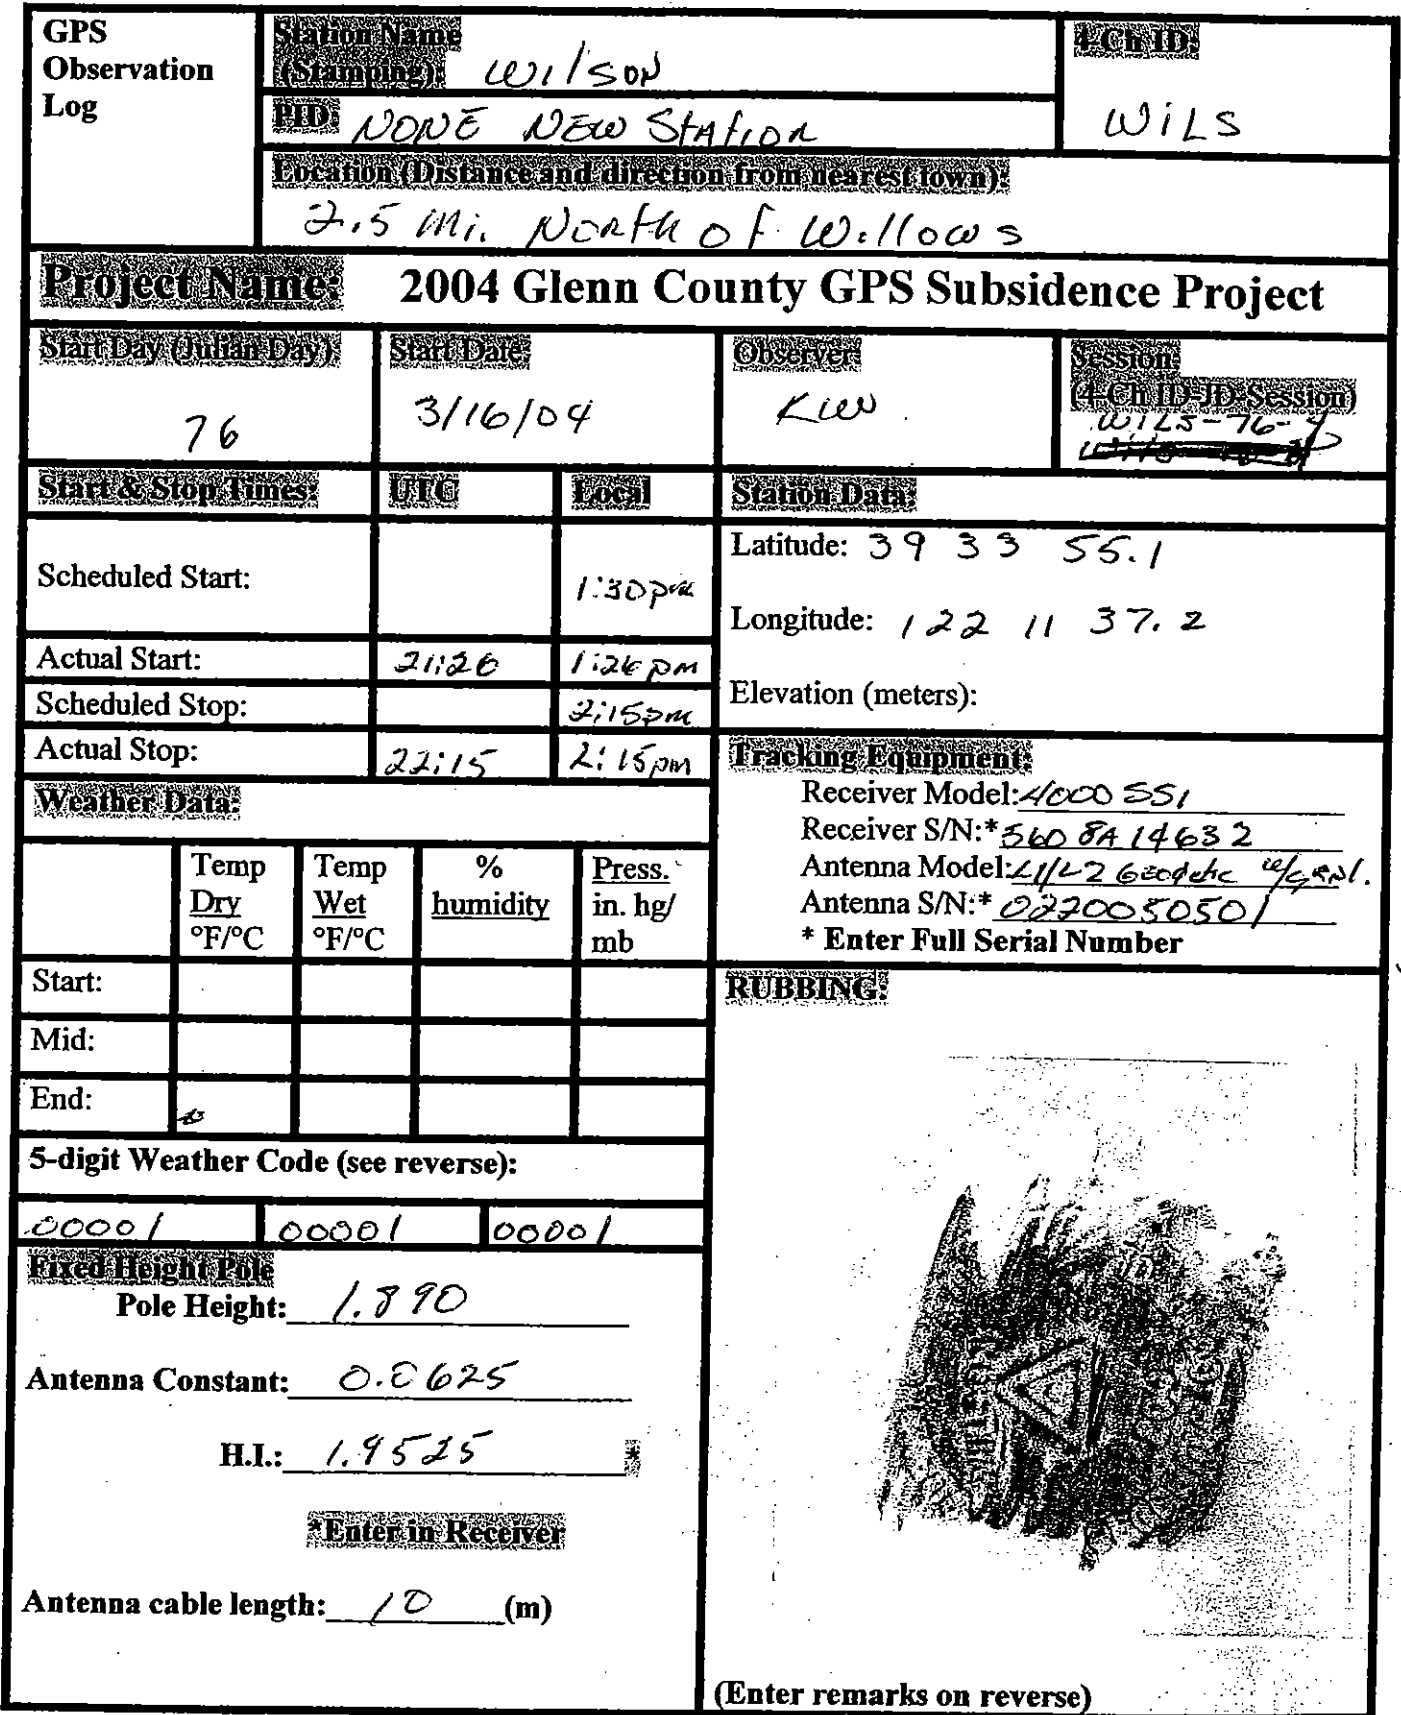 GPS
Observation
Log
Station Name
(Stamping): Wilson
4-Ch ID:
WILS
PID: NONE NEW Station
Location (Distance and direction from nearest town):
2.5 Mi. North of Willows
Project Name: 2004 Glenn County GPS Subsidence Project
Start Day (Julian Day):
76
Start Date:
3/16/04
Observer:
KW
Session:
(4-Ch ID-JD-Session)
WILS-76-
Start & Stop Times: UTC Local
Scheduled Start: 1:30pm
Actual Start: 21:26 1:26pm
Scheduled Stop: 2:15pm
Actual Stop: 22:15 2:15pm
Station Data:
Latitude: 39 33 55.1
Longitude: 122 11 37.2
Elevation (meters):
Tracking Equipment:
Receiver Model: 4000 SSI
Receiver S/N:* 3608A14632
Antenna Model: L1/L2 Geodetic w/
Antenna S/N:* 0220050501
* Enter Full Serial Number
Weather Data:
Temp
Dry
°F/°C
Temp
Wet
°F/°C
%
humidity
Press.
in. hg/
mb
Start:
Mid:
End:
5-digit Weather Code (see reverse):
00001 00001 00001
Fixed Height Pole
Pole Height: 1.890
Antenna Constant: 0.0625
H.I.: 1.9525 *
*Enter in Receiver
Antenna cable length: 10 (m)
RUBBING:
(Enter remarks on reverse)